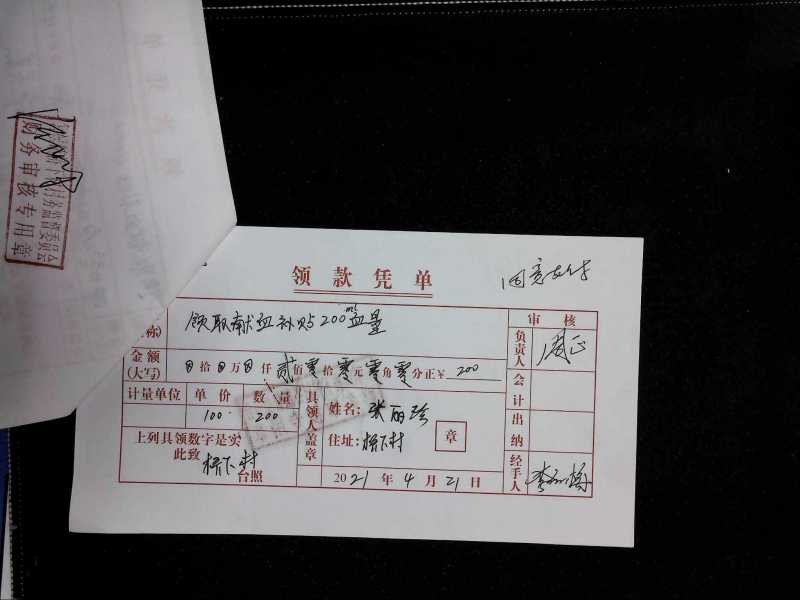 领款凭单
同意支付
称)
领取献血补贴200ml血量
审 核
金额
(大写)
拾 万 仟 贰佰零拾零元零角零分正¥ 200
负责人
计量单位 单价 数量
100 200
具领人盖章
姓名: 张丽珍
住址: 杨下村
章
会计
出纳
上列具领数字是实
此致
杨下村
台照
2021年4月21日
经手人
财务审核专用章